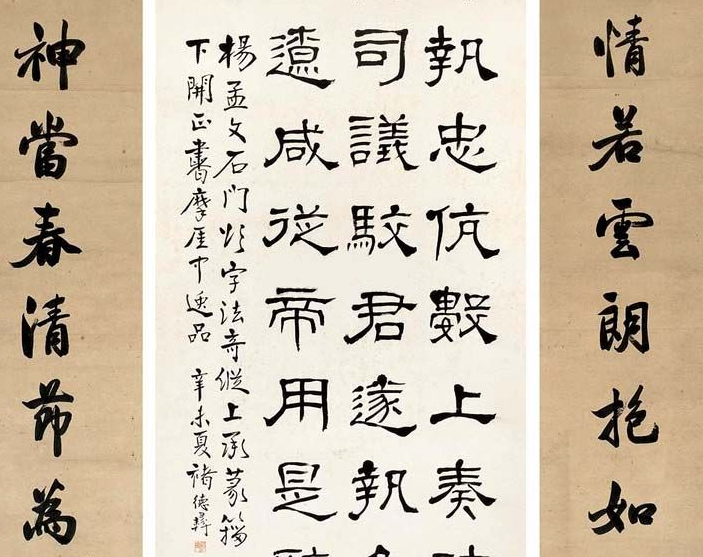 情若雲朗抱如
執忠伉數上奏
司議駮君遂執
遼咸從帝用是
楊孟文石門頌字法奇縱上承篆籀
下開正書摩厓中逸品 辛未夏 褚德彝
神當春清節為